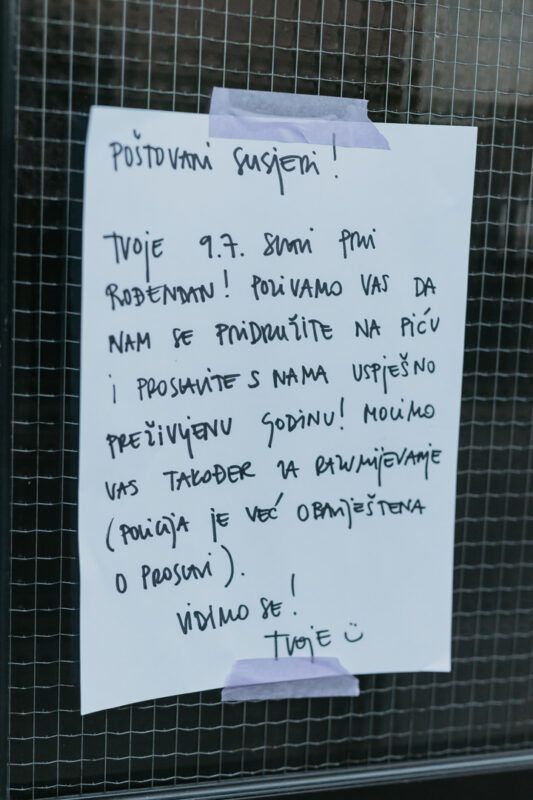 POŠTOVANI SUSJEDI!
TVOJE 9.7. SLAVI PRVI
ROĐENDAN! POZIVAMO VAS DA
NAM SE PRIDRUŽITE NA PIĆU
I PROSLAVITE S NAMA USPJEŠNO
PREŽIVLJENU GODINU! MOLIMO
VAS TAKOĐER ZA RAZUMIJEVANJE
(POLICIJA JE VEĆ OBAVJEŠTENA
O PROSLAVI).
VIDIMO SE!
TVOJE ☺